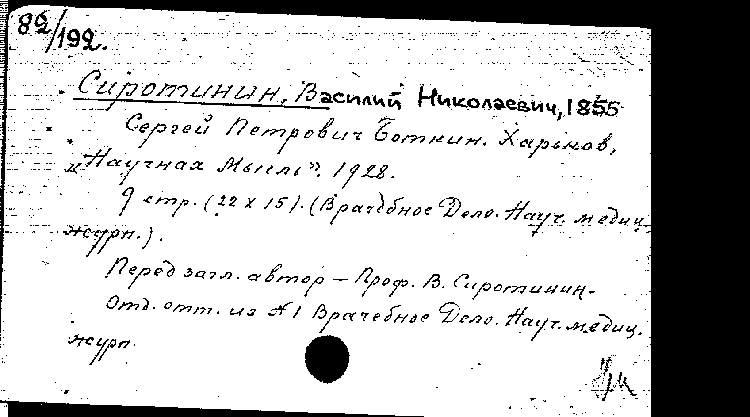 82/192.
Сиротинин, Василий Николаевич, 1855
Сергей Петрович Боткин. Харьков,
„Научная Мысль”. 1928.
9 стр. (22 x 15). (Врачебное Дело. Науч. медиц.
журн.).
Перед загл. автор — Проф. В. Сиротинин.
Отд. отт. из №1 Врачебное Дело. Науч. медиц.
журн.